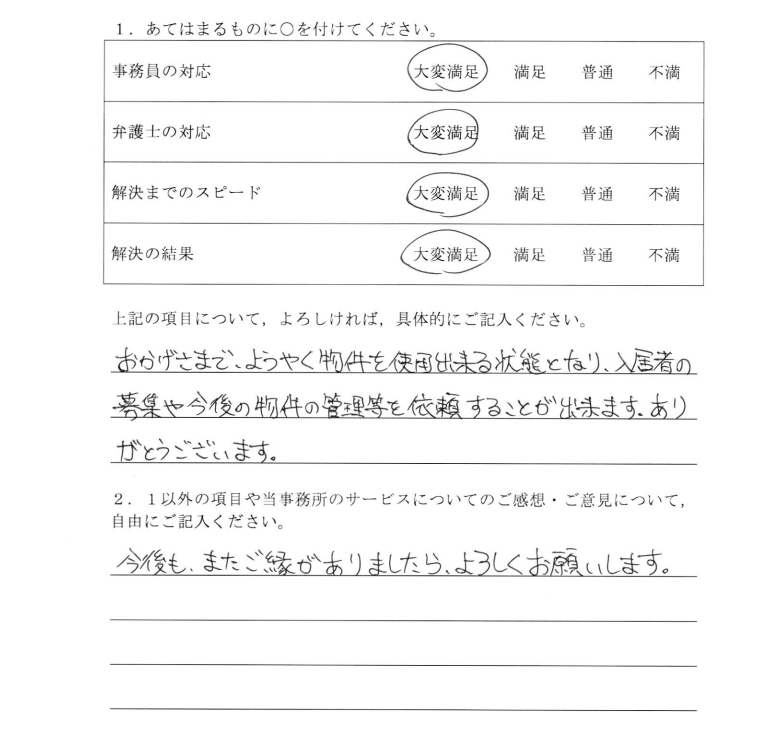 １．あてはまるものに○を付けてください。
事務員の対応 大変満足 満足 普通 不満
弁護士の対応 大変満足 満足 普通 不満
解決までのスピード 大変満足 満足 普通 不満
解決の結果 大変満足 満足 普通 不満
上記の項目について，よろしければ，具体的にご記入ください。
おかげさまで、ようやく物件を使用出来る状態となり、入居者の
募集や今後の物件の管理等を依頼することが出来ます。あり
がとうございます。
２．１以外の項目や当事務所のサービスについてのご感想・ご意見について，
自由にご記入ください。
今後も、またご縁がありましたら、よろしくお願いします。